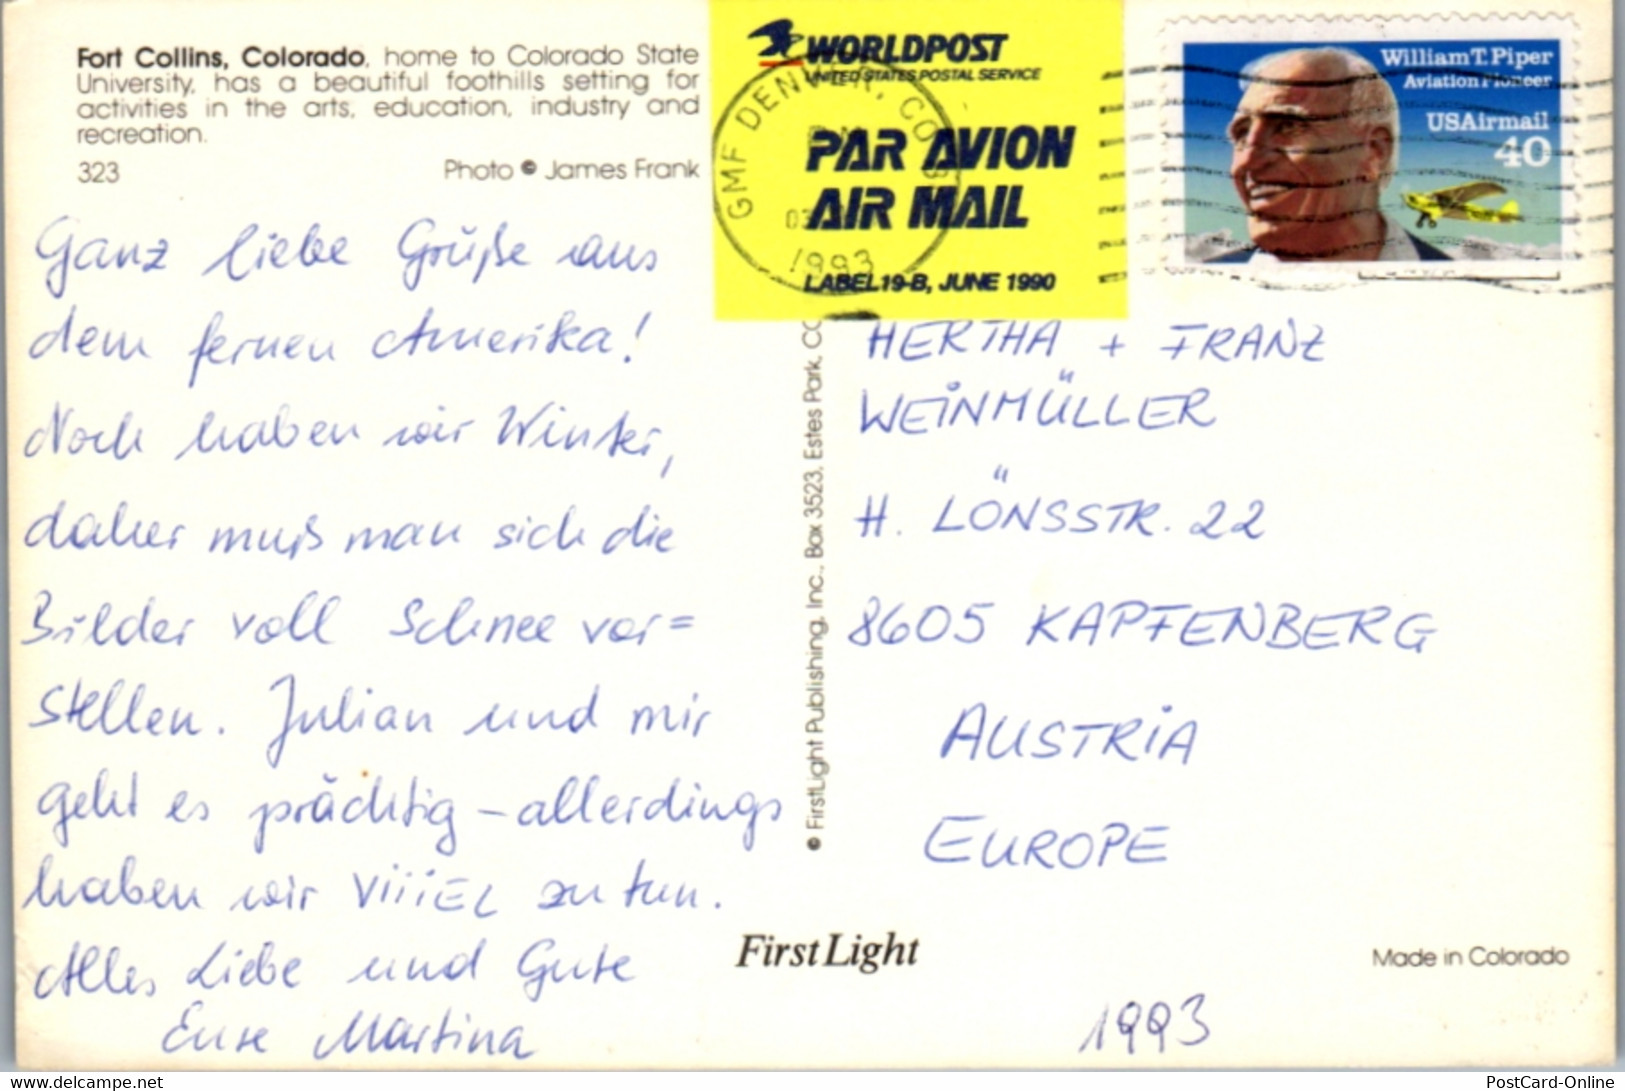 Fort Collins, Colorado, home to Colorado State
University, has a beautiful foothills setting for
activities in the arts, education, industry and
recreation.
323
Photo © James Frank
WORLDPOST
UNITED STATES POSTAL SERVICE
PAR AVION
AIR MAIL
LABEL 19-B, JUNE 1990
GMF DENVER, CO
1993
William T. Piper
Aviation Pioneer
USAirmail
40
Ganz liebe Grüße aus
dem fernen Amerika!
Noch haben wir Winter,
daher muß man sich die
Bilder voll Schnee vor=
stellen. Julian und mir
geht es prächtig – allerdings
haben wir ViiiEL zu tun.
Alles Liebe und Gute
Eure Martina
© FirstLight Publishing, Inc., Box 3523, Estes Park, CO
HERTHA + FRANZ
WEiNMÜLLER
H. LÖNSSTR. 22
8605 KAPFENBERG
AUSTRiA
EUROPE
First Light
Made in Colorado
1993
www.delcampe.net
PostCard-Online